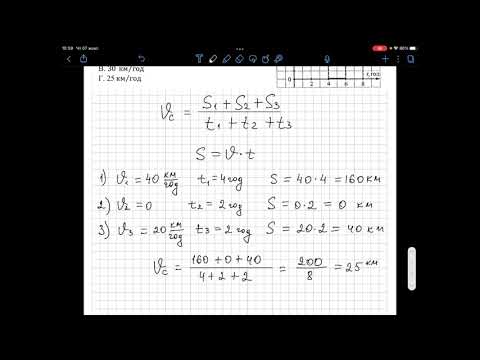 10:59 Чт 07 жовт 80%
В. 30 км/год
Г. 25 км/год
0 2 4 6 8 t, год
ϑc = S₁ + S₂ + S₃ / t₁ + t₂ + t₃
S = ϑ · t
1) ϑ₁ = 40 км/год t₁ = 4 год S = 40 · 4 = 160 км
2) ϑ₂ = 0 t₂ = 2 год S = 0 · 2 = 0 км
3) ϑ₃ = 20 км/год t₃ = 2 год S = 20 · 2 = 40 км
ϑc = 160 + 0 + 40 / 4 + 2 + 2 = 200 / 8 = 25 км